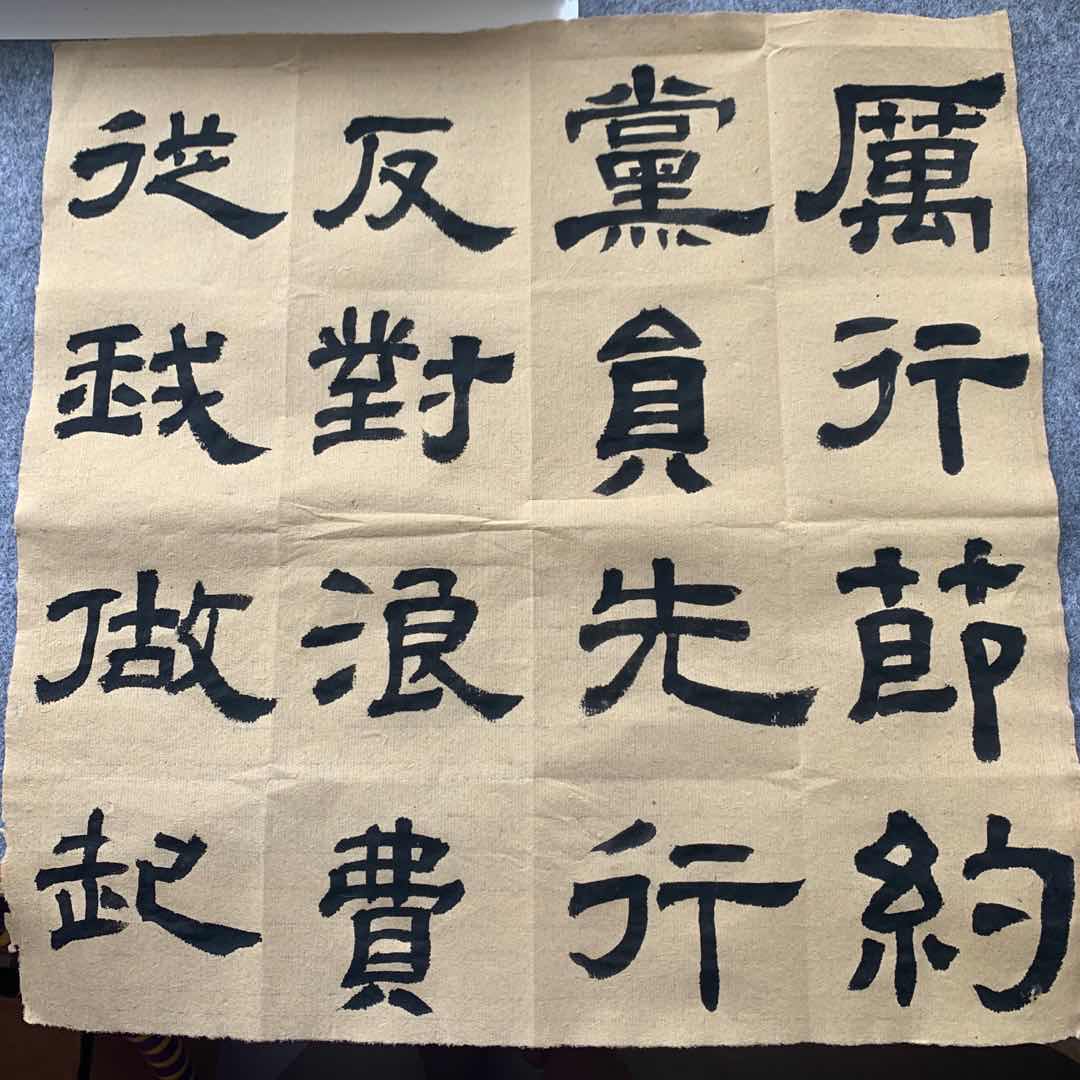 厲行節約
黨員先行
反對浪費
從我做起